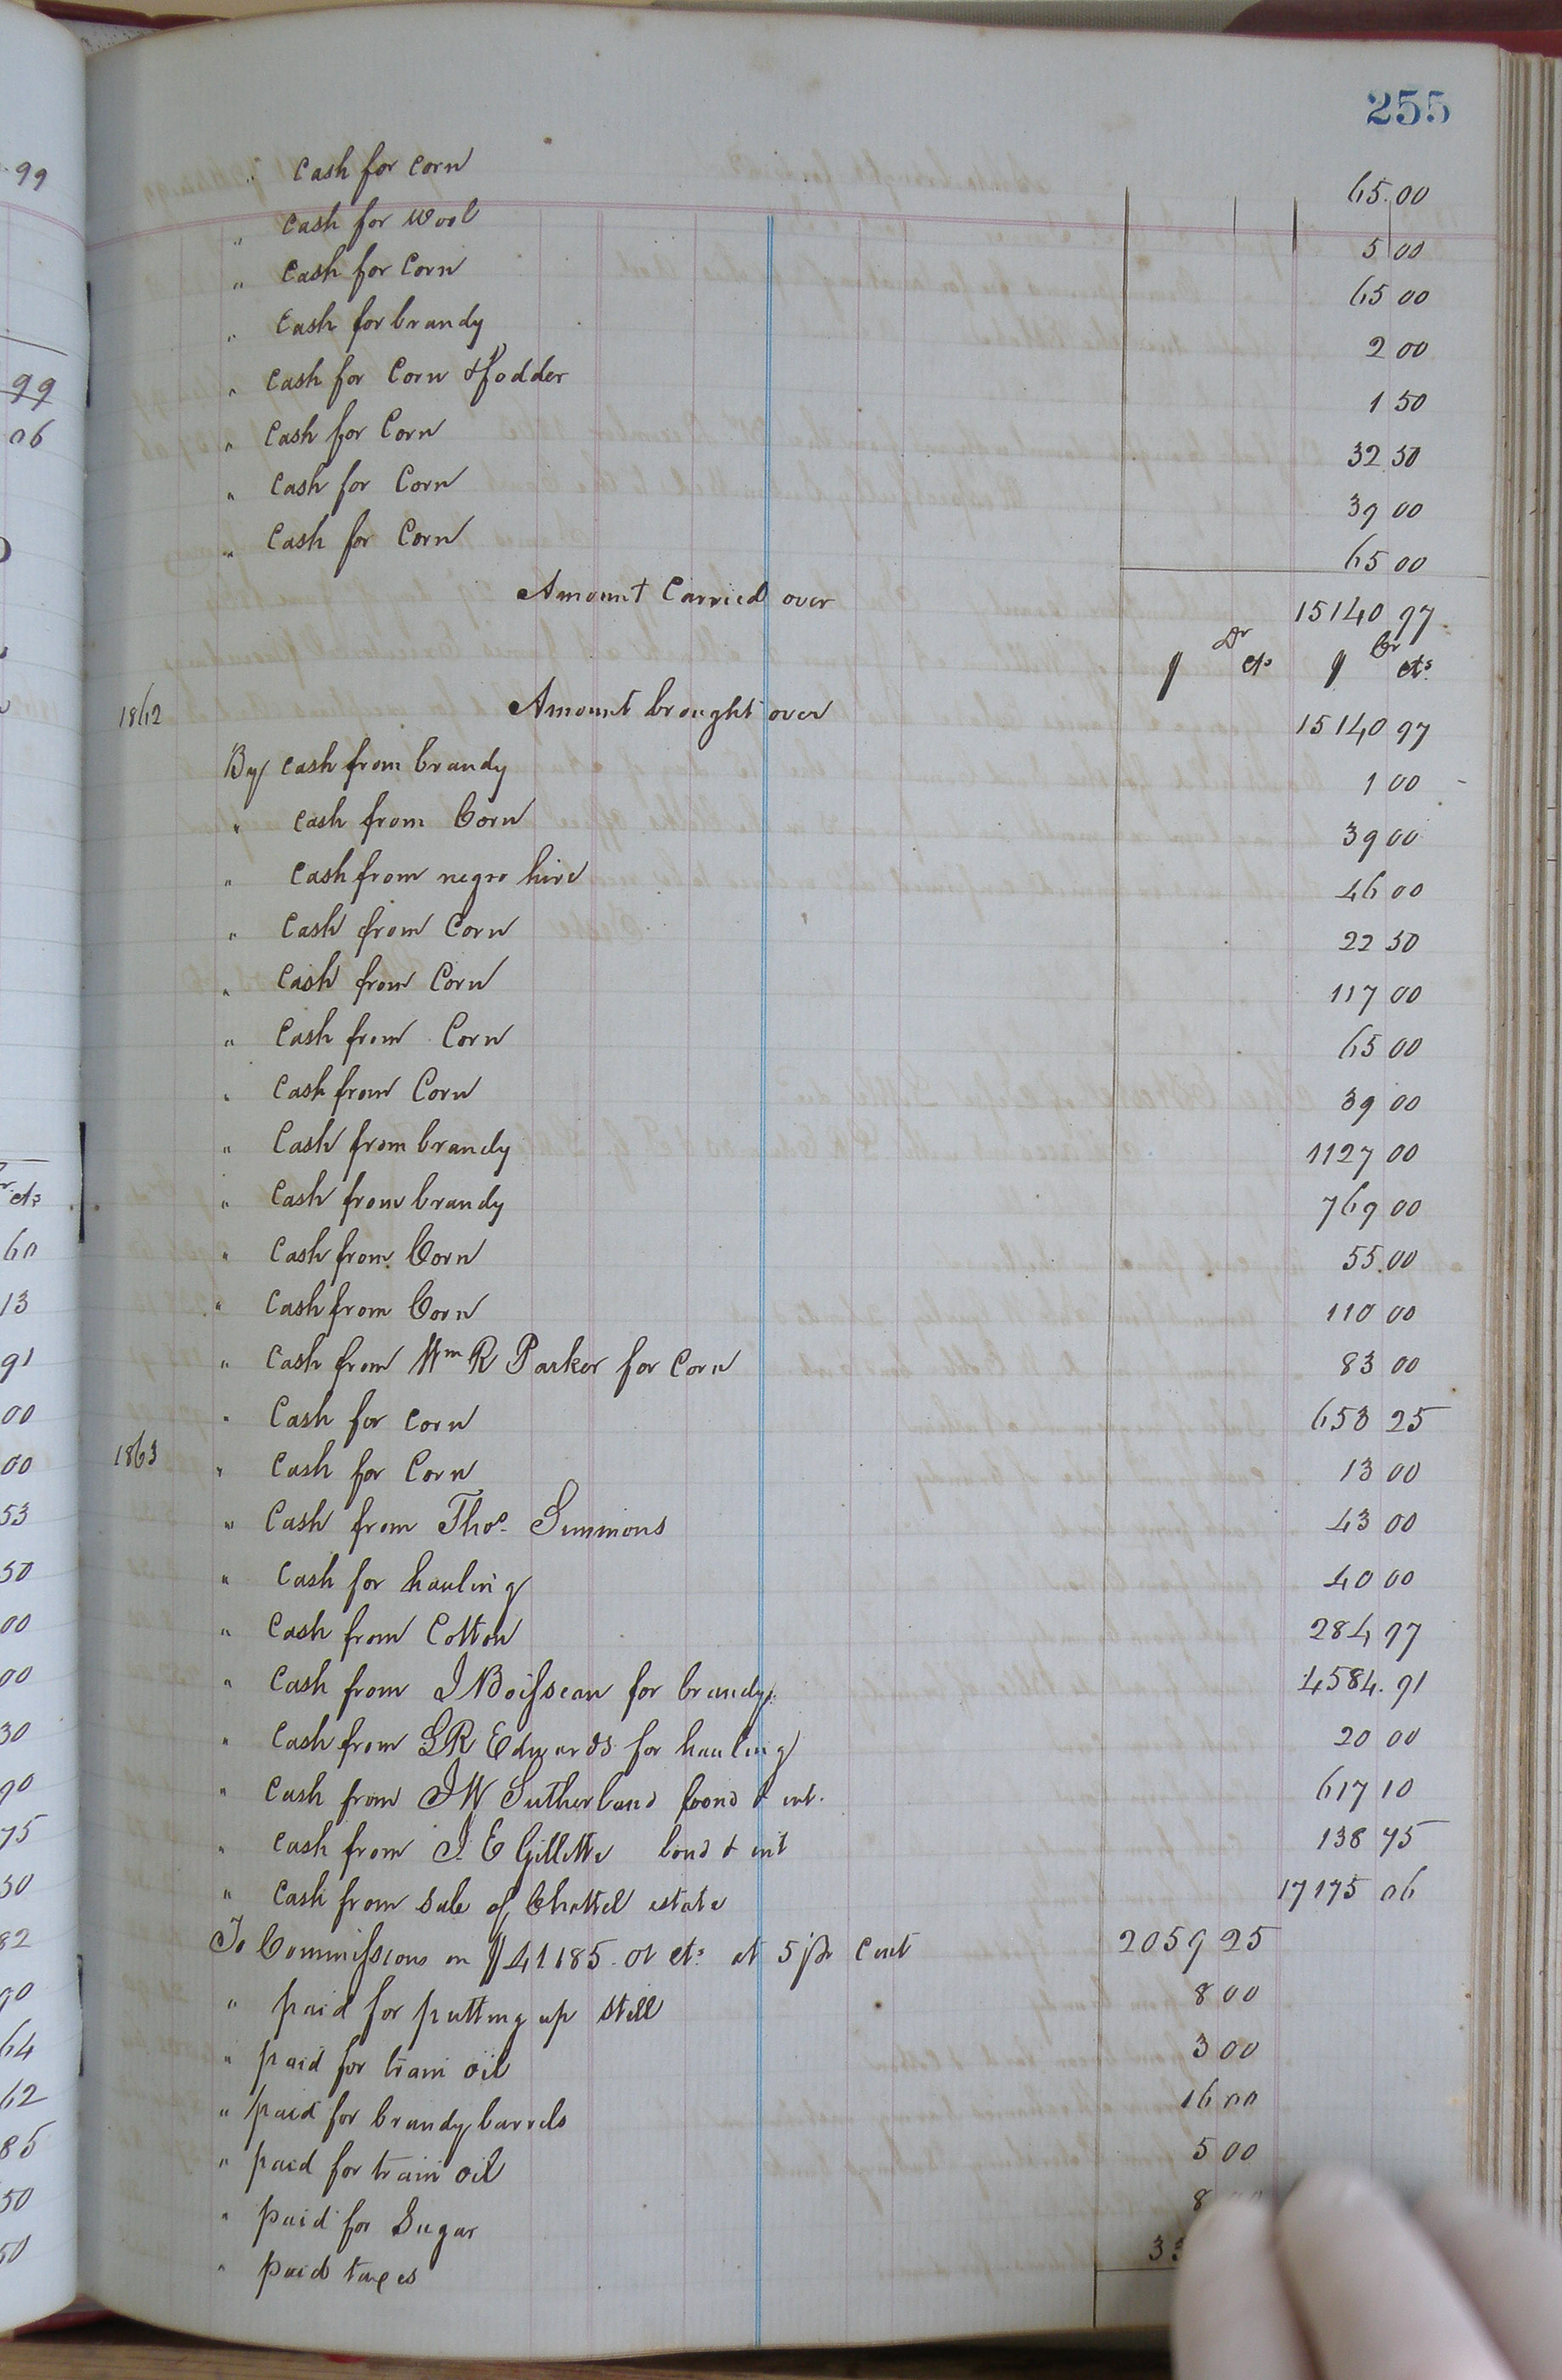 255
" Cash for Corn 65.00
" Cash for Wool 5 00
" Cash for Corn 65 00
" Cash for brandy 2 00
" Cash for Corn & fodder 1 50
" Cash for Corn 32.50
" Cash for Corn 39 00
" Cash for Corn 65 00
Amount Carried over 15140 97
Dr Cr
$ cts $ cts
1862 Amount brought over 15140 97
By Cash from brandy 1 00
" Cash from Corn 39 00
" Cash from negro hire 46 00
" Cash from Corn 22 50
" Cash from Corn 117 00
" Cash from Corn 65 00
" Cash from Corn 39 00
" Cash from brandy 1127 00
" Cash from brandy 769 00
" Cash from Corn 55.00
" Cash from Corn 110 00
" Cash from Wm R Parker for Corn 83 00
" Cash for Corn 653 25
1863 " Cash for Corn 13 00
" Cash from Thos. Simmons 43 00
" Cash for hauling 40 00
" Cash from Cotton 284 97
" Cash from J Boisseau for brandy 4584.91
" Cash from Edwards for hauling 20 00
" Cash from J W Sutherland bond & int. 617 10
" Cash from J. E Gillette bond & int 138 75
" Cash from sale of Chattel estate 17175 06
To Commissions on $41185.01 cts at 5 pr Cent 2059 25
" paid for putting up still 8 00
" paid for train oil 3 00
" paid for brandy barrels 16 00
" paid for train oil 5 00
" paid for Sugar 8
" paid taxes